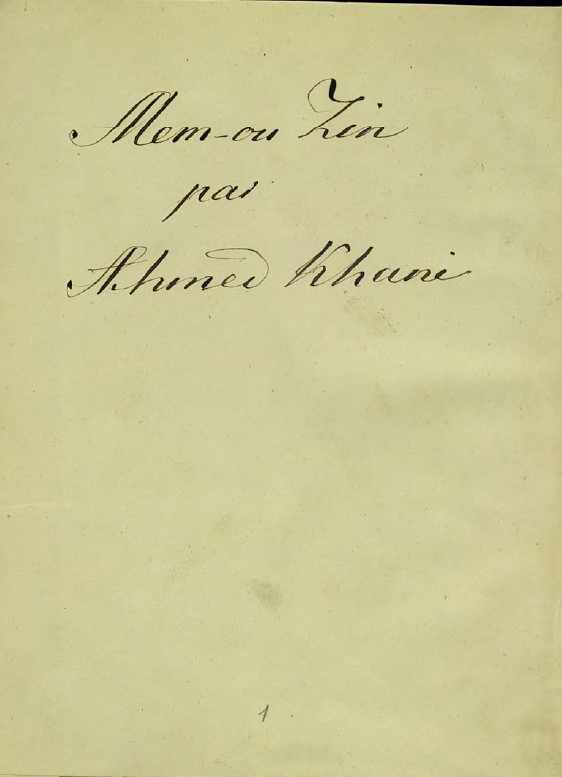 Mem-ou Zin
par
Ahmed Khani
1